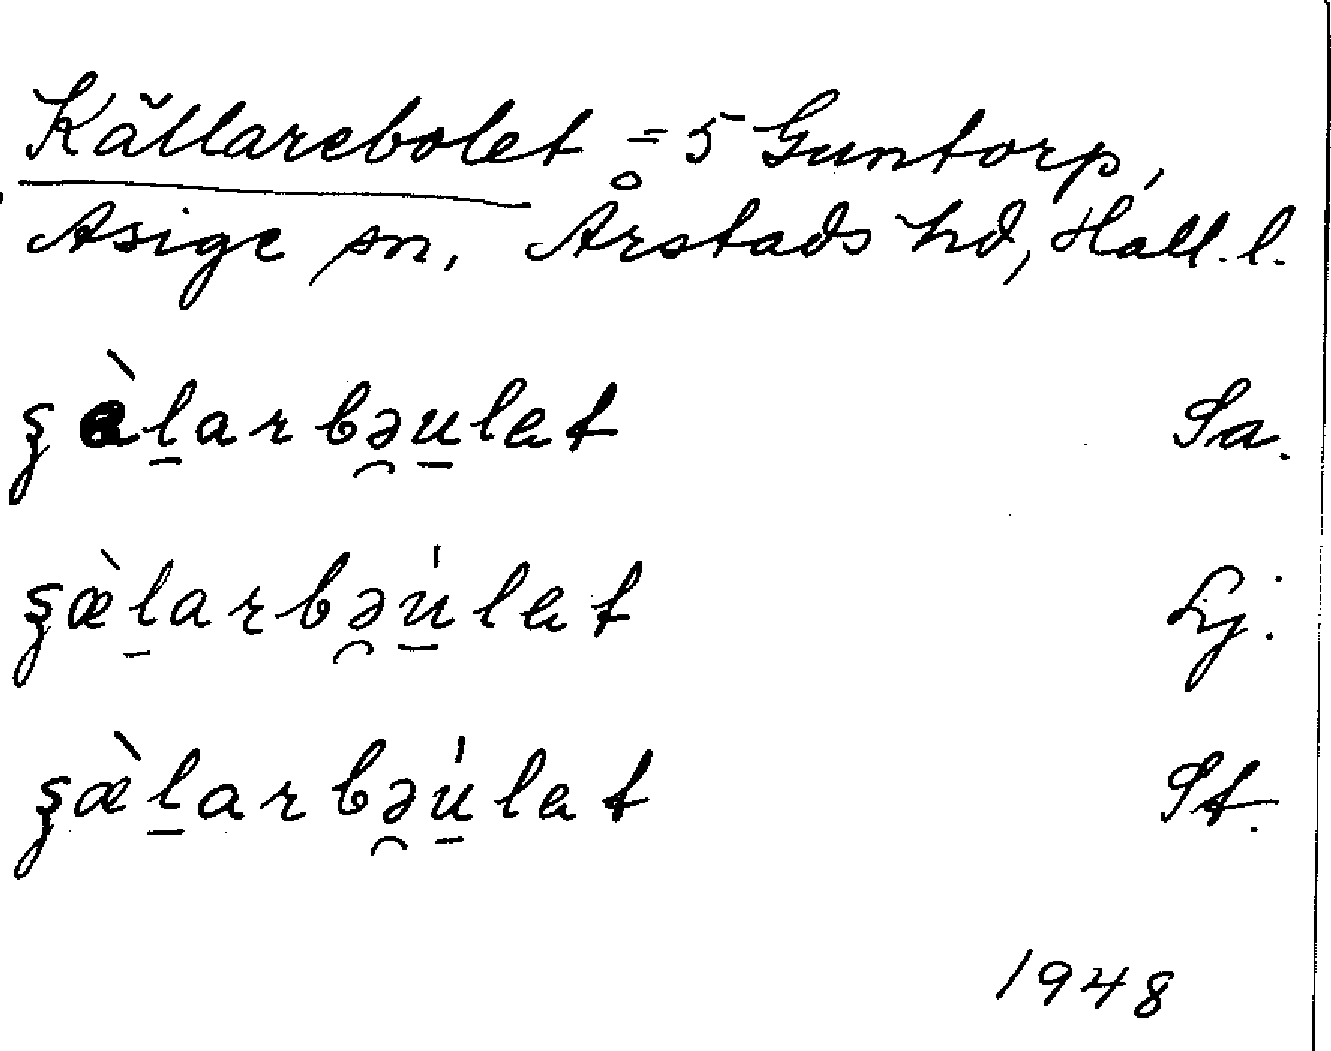 Källarebolet = 5 Guntorp,
Asige sn, Årstads hd, Hall. l.
ʂæ̀l̲arbə̯u̲let Sa.
ʂæ̀l̲arbə̯u̲̍let Lj.
ʂæ̀l̲arbə̯u̲̍let St.
1948